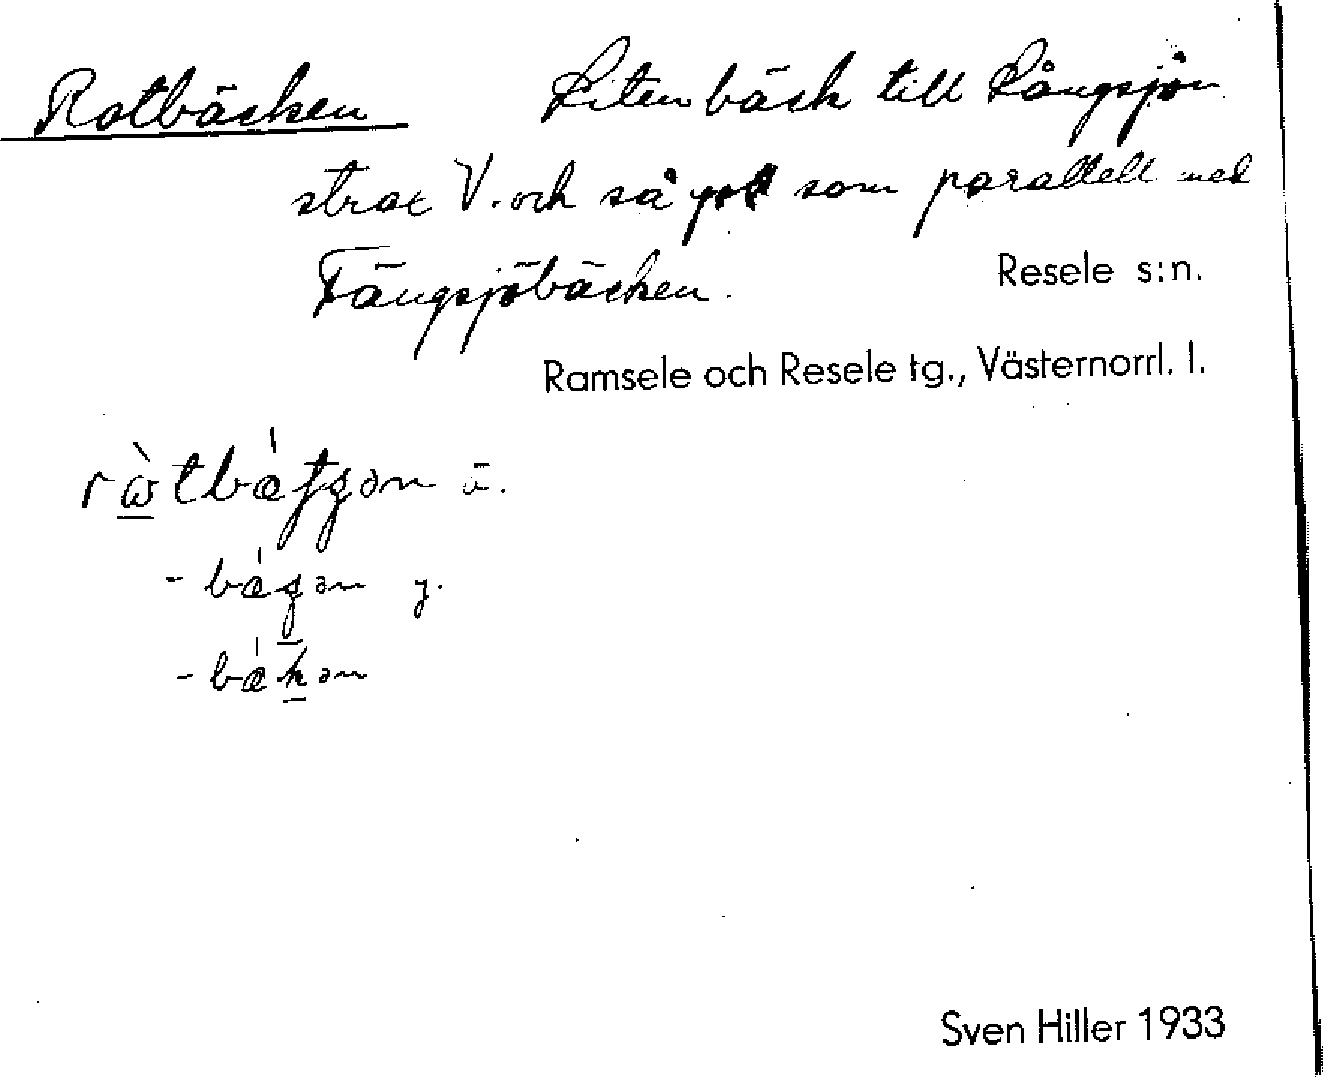 Rotbäcken Liten bäck till Långsjön
strax V. och så gott som parallell med
Tängsjöbäcken.
Resele s:n.
Ramsele och Resele tg., Västernorrl. l.
ä.
y.
Sven Hiller 1933